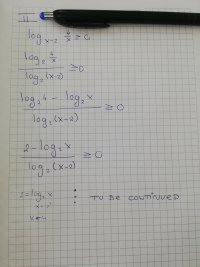 11
log_{x-2} 4/x ≥ 0
log_2 4/x / log_2 (x-2) ≥ 0
log_2 4 - log_2 x / log_2 (x-2) ≥ 0
2 - log_2 x / log_2 (x-2) ≥ 0
2 = log_2 x
TO BE CONTINUED